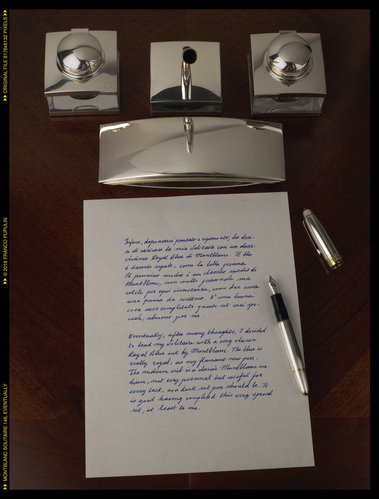 Infine, dopo averci pensato e ripensato, ho deci-
so di caricare la mia Solitaire con un classi-
chissimo Royal Blue di Montblanc. Il blu
è davvero regale, come la bella penna.
Il pennino medio è un classico medio di
Montblanc, non molto personale, ma
utile per ogni circostanza, come dev'essere
una penna da scrittoio. È una buona
cosa aver completato questo set così spe-
ciale, almeno per me.
Eventually, after many thoughts, I decided
to load my Solitaire with a very classic
Royal Blue ink by Montblanc. The blue is
really regal, as my flamant new pen.
The medium nib is a classic Montblanc me-
dium, not very personal but useful for
every task, as a desk set pen should be. It
is good having completed this very special
set, at least to me.
ORIGINAL FILE 6176x8132 PIXELS
© 2019 FRANCO PUPULIN
MONTBLANC SOLITAIRE 146, EVENTUALLY